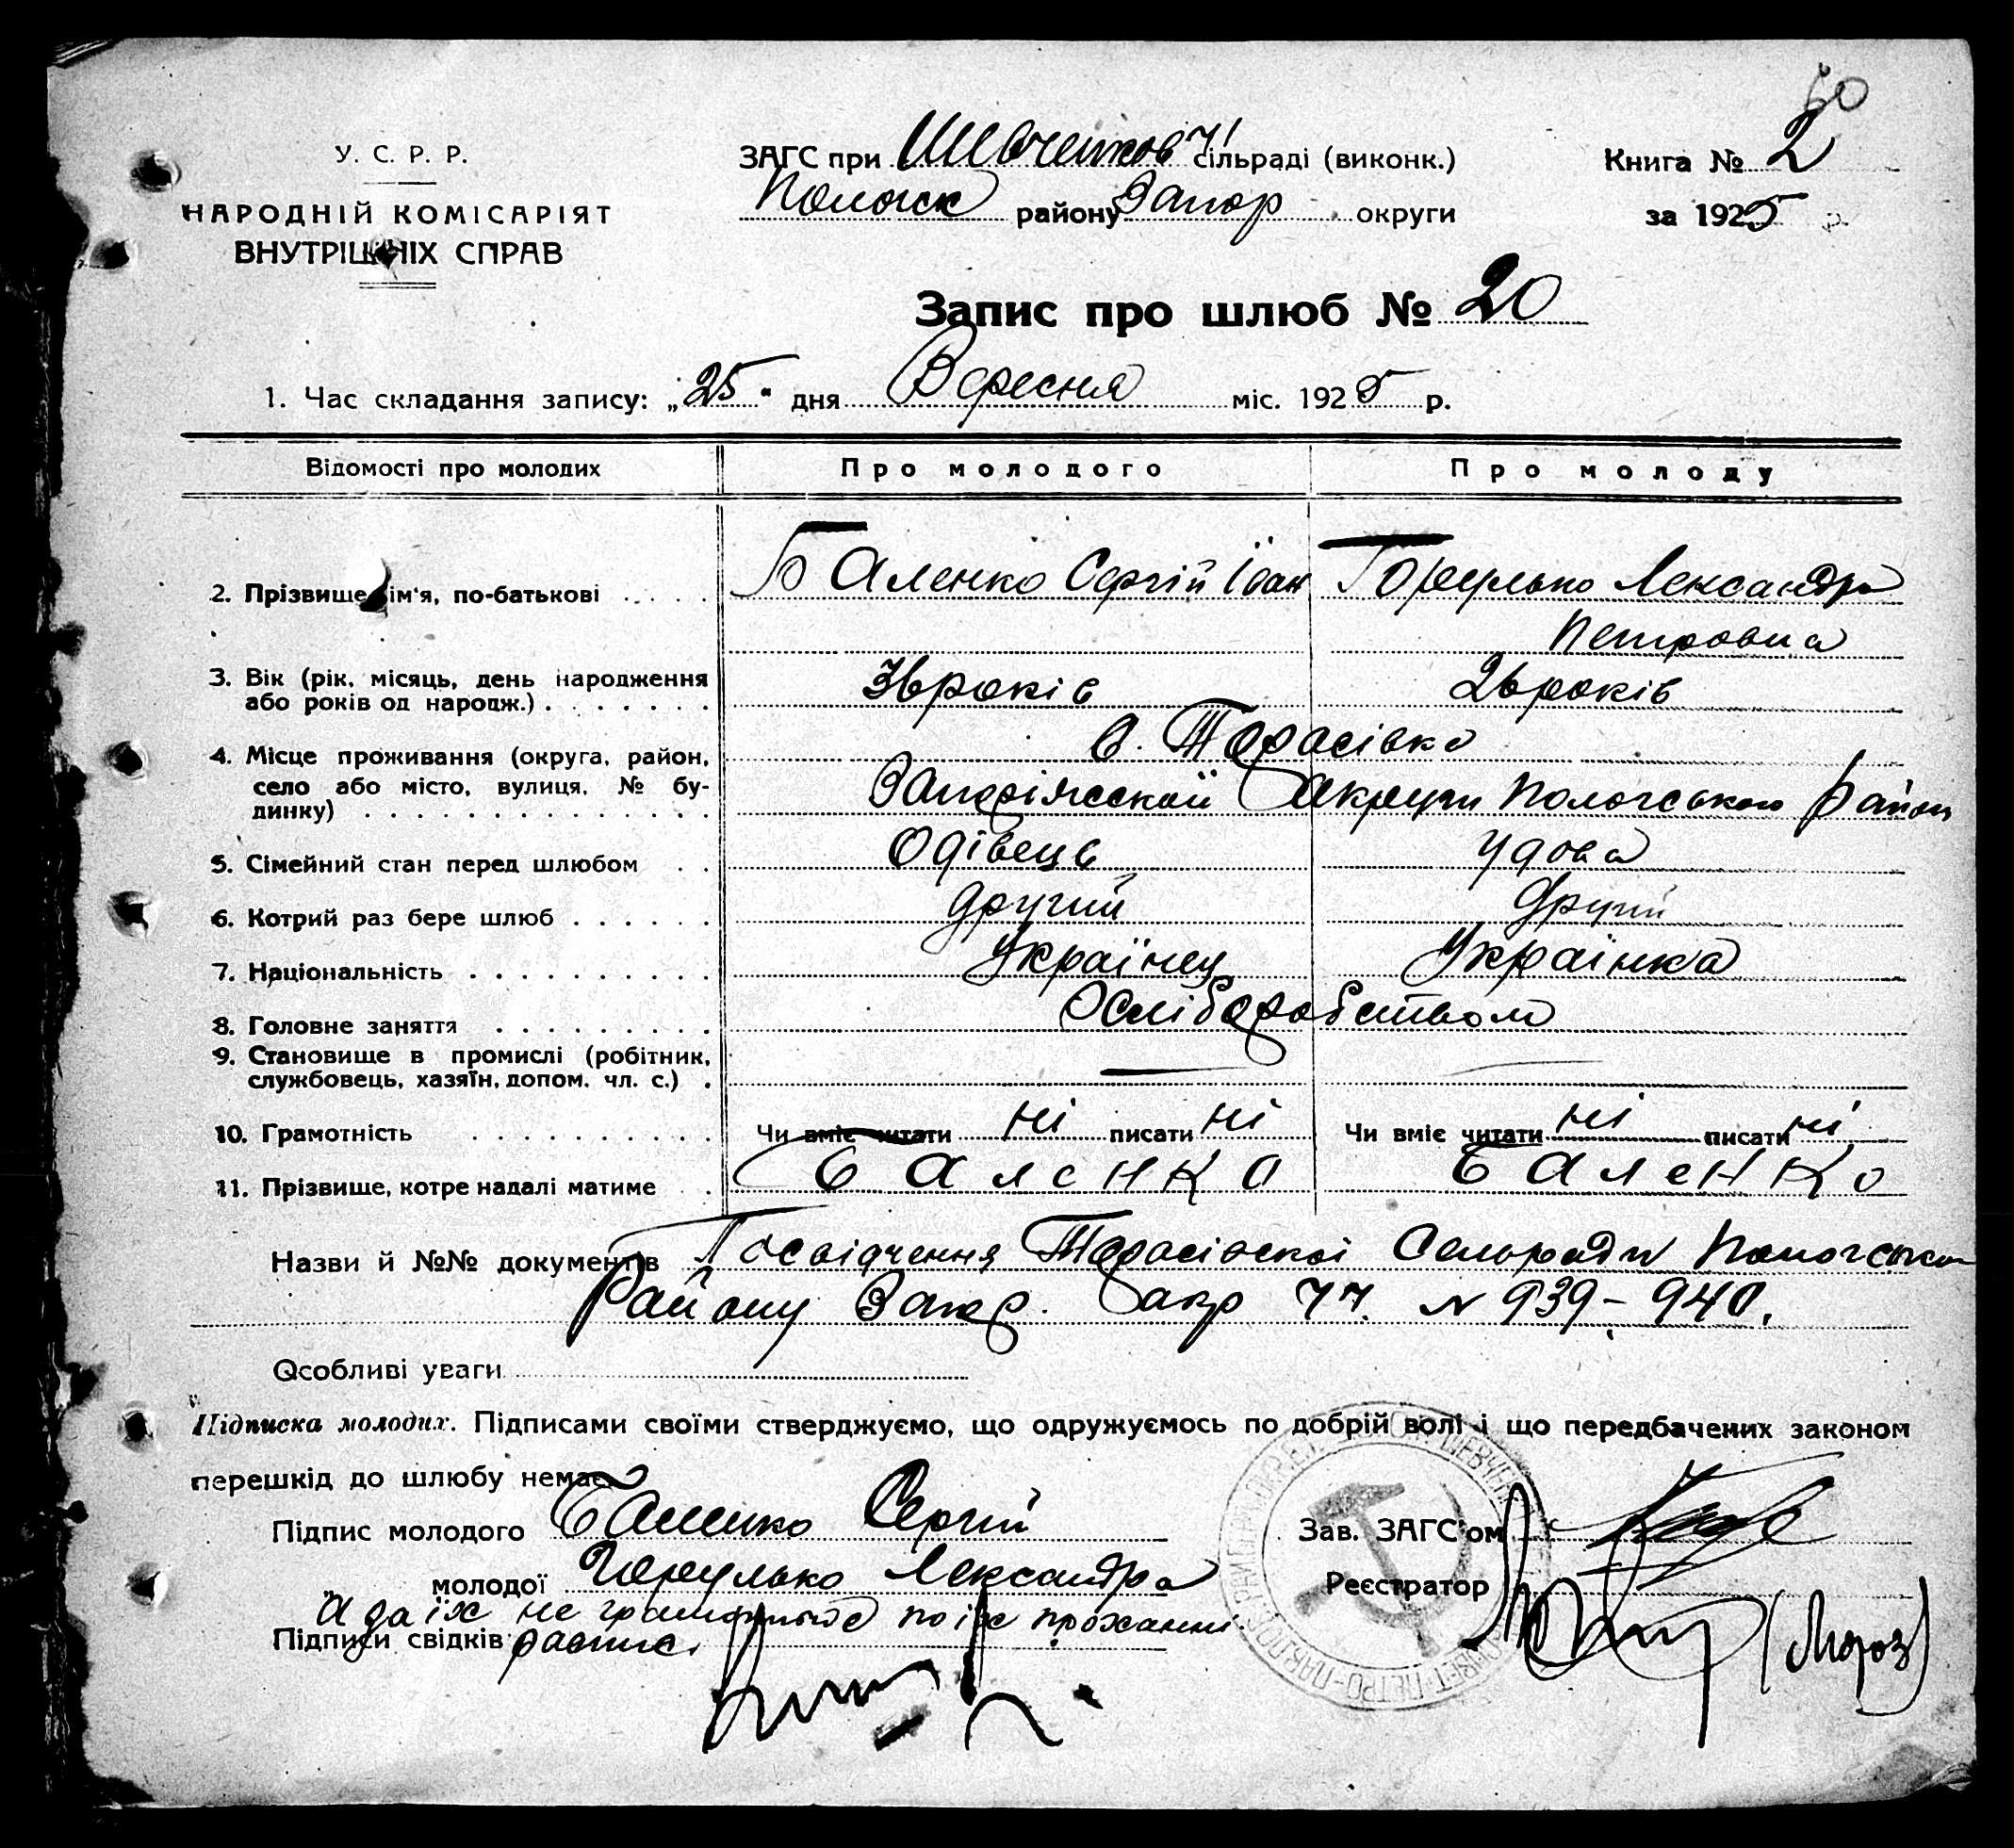 50
У. С. Р. Р.
НАРОДНІЙ КОМІСАРІЯТ
ВНУТРІШНІХ СПРАВ
ЗАГС при Шевченков сільраді (виконк.)
Пологск району Запор округи
Книга № 2
за 1925
Запис про шлюб № 20
1. Час складання запису: „25" дня Вересня міс. 1925 р.
Відомості про молодих Про молодого Про молоду
2. Прізвище, ім'я, по-батькові Баленко Сергій Іван Горулько Лександра
Петровна
3. Вік (рік, місяць, день народження
або років од народж.) 36 років 26 років
4. Місце проживання (округа, район, с. Тарасівка
село або місто, вулиця, № бу-
динку) Запоріжської Округи Пологського Району
5. Сімейний стан перед шлюбом Одівець Удова
6. Котрий раз бере шлюб другий Другий
7. Національність Українец Українка
8. Головне заняття Хліборобством
9. Становище в промислі (робітник,
службовець, хазяїн, допом. чл. с.) — —
10. Грамотність Чи вміє читати ні писати ні Чи вміє читати ні писати ні
11. Прізвище, котре надалі матиме Баленко Баленко
Назви й №№ документів Посвідчення Тарасівської Сельради Пологсько
Району Запор. Окр № 939-940.
Особливі уваги
Підписка молодих. Підписами своїми стверджуємо, що одружуємось по добрій волі і що передбачених законом
перешкід до шлюбу немає
Підпис молодого Баленко Сергій
Зав. ЗАГС'ом
„ молодої Горулько Лександра
Реєстратор (Мороз)
А за їх не грамотные по їх проханні
Підписи свідків распис.